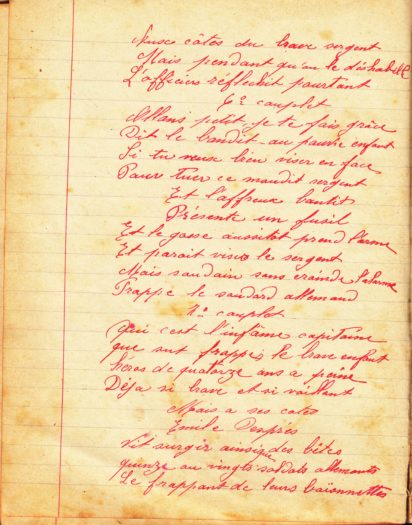 Aux côtes du brave sergent
Mais pendant qu'on le déshabille
L'officier réfléchit pourtant
6e couplet
Allons petit je te fais grâce
Dit le bandit au pauvre enfant
Si tu veux bien viser en face
Pour tuer ce maudit sergent
Et l'affreux bantit
Présente un fusil
Et le gosse aussitot prend l'arme
Et parait viser le sergent
Mais soudain sans craindre
Frappe le soudard allemand
couplet
qui c'est l'infâme capitaine
que sut frapper le brave enfant
héros de quatorze ans a peine
Déja si brave et si vaillant
Mais a ses cotes
Emile Després
Vit surgir ainsi des bêtes
quinze au vingts soldats allemants
Le frappant de leurs baïonnettes